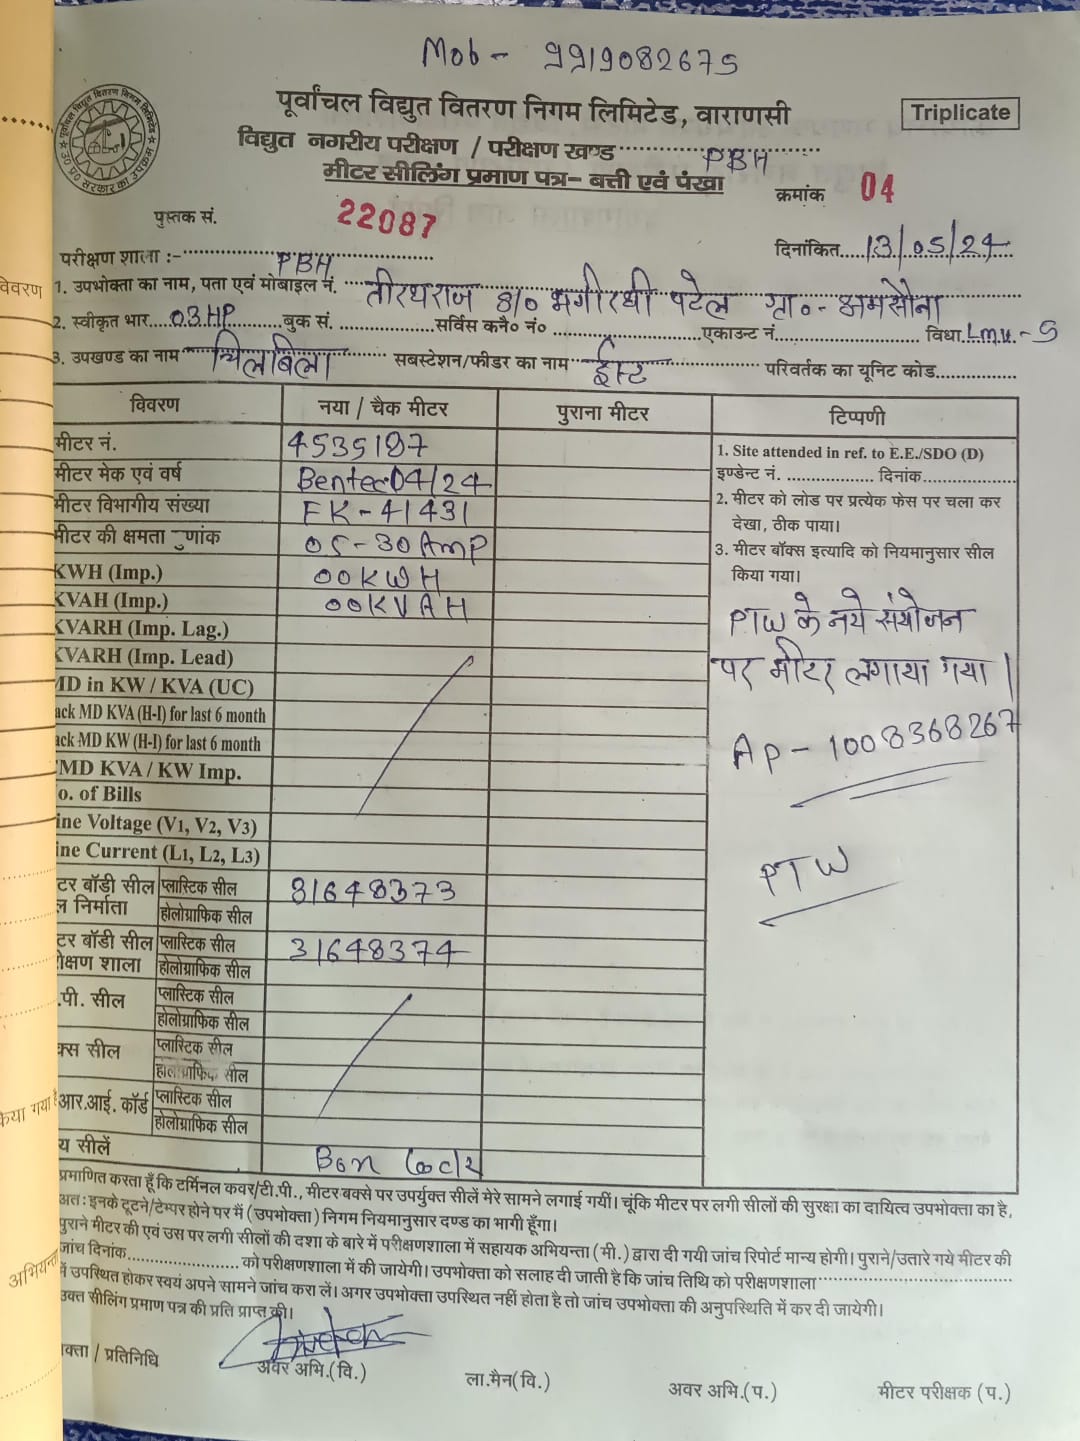 Mob - 9919082675
पूर्वांचल विद्युत वितरण निगम लिमिटेड, वाराणसी
Triplicate
विद्युत नगरीय परीक्षण / परीक्षण खण्ड PBH
मीटर सीलिंग प्रमाण पत्र– बत्ती एवं पंखा
क्रमांक 04
पुस्तक सं. 22087
दिनांकित....13/05/24
परीक्षण शाला :- PBH
विवरण
1. उपभोक्ता का नाम, पता एवं मोबाइल नं. तीरथराज S/O भगीरथी पटेल ग्रा०- अमसौना
2. स्वीकृत भार....03HP बुक सं. ..................सर्विस कनै० नं० ........................एकाउन्ट नं........................... विधा.L.m.v.-5
3. उपखण्ड का नाम चिलबिला सबस्टेशन/फीडर का नाम ईस्ट परिवर्तक का यूनिट कोड...............
विवरण नया / चैक मीटर पुराना मीटर टिप्पणी
मीटर नं. 4535187
मीटर मेक एवं वर्ष Bentec 04/24
मीटर विभागीय संख्या EK-41431
मीटर की क्षमता गुणांक 05-30 Amp
KWH (Imp.) 00KWH
KVAH (Imp.) 00KVAH
KVARH (Imp. Lag.)
KVARH (Imp. Lead)
MD in KW / KVA (UC)
ack MD KVA (H-I) for last 6 month
ack MD KW (H-I) for last 6 month
MD KVA / KW Imp.
o. of Bills
ine Voltage (V1, V2, V3)
ine Current (L1, L2, L3)
1. Site attended in ref. to E.E./SDO (D)
इण्डेन्ट नं. .................. दिनांक...................
2. मीटर को लोड पर प्रत्येक फेस पर चला कर
देखा, ठीक पाया।
3. मीटर बॉक्स इत्यादि को नियमानुसार सील
किया गया।
PTW के नये संयोजन
पर मीटर लगाया गया।
AP - 1008368267
PTW
टर बॉडी सील प्लास्टिक सील 31648373
ल निर्माता होलोग्राफिक सील
टर बॉडी सील प्लास्टिक सील 31648374
रीक्षण शाला होलोग्राफिक सील
.पी. सील प्लास्टिक सील
होलोग्राफिक सील
क्स सील प्लास्टिक सील
होलोग्राफिक सील
आर.आई. कॉर्ड प्लास्टिक सील
होलोग्राफिक सील
य सीलें
किया गया
प्रमाणित करता हूँ कि टर्मिनल कवर/टी.पी., मीटर बक्से पर उपर्युक्त सीलें मेरे सामने लगाई गयीं। चूंकि मीटर पर लगी सीलों की सुरक्षा का दायित्व उपभोक्ता का है,
अतः इनके टूटने/टेम्पर होने पर मैं (उपभोक्ता) निगम नियमानुसार दण्ड का भागी हूँगा।
पुराने मीटर की एवं उस पर लगी सीलों की दशा के बारे में परीक्षणशाला में सहायक अभियन्ता (मी.) द्वारा दी गयी जांच रिपोर्ट मान्य होगी। पुराने/उतारे गये मीटर की
जांच दिनांक........................ को परीक्षणशाला में की जायेगी। उपभोक्ता को सलाह दी जाती है कि जांच तिथि को परीक्षणशाला
में उपस्थित होकर स्वयं अपने सामने जांच करा लें। अगर उपभोक्ता उपस्थित नहीं होता है तो जांच उपभोक्ता की अनुपस्थिति में कर दी जायेगी।
उक्त सीलिंग प्रमाण पत्र की प्रति प्राप्त की।
अभियन्ता
क्ता / प्रतिनिधि अवर अभि.(वि.) ला.मैन(वि.) अवर अभि.(प.) मीटर परीक्षक (प.)